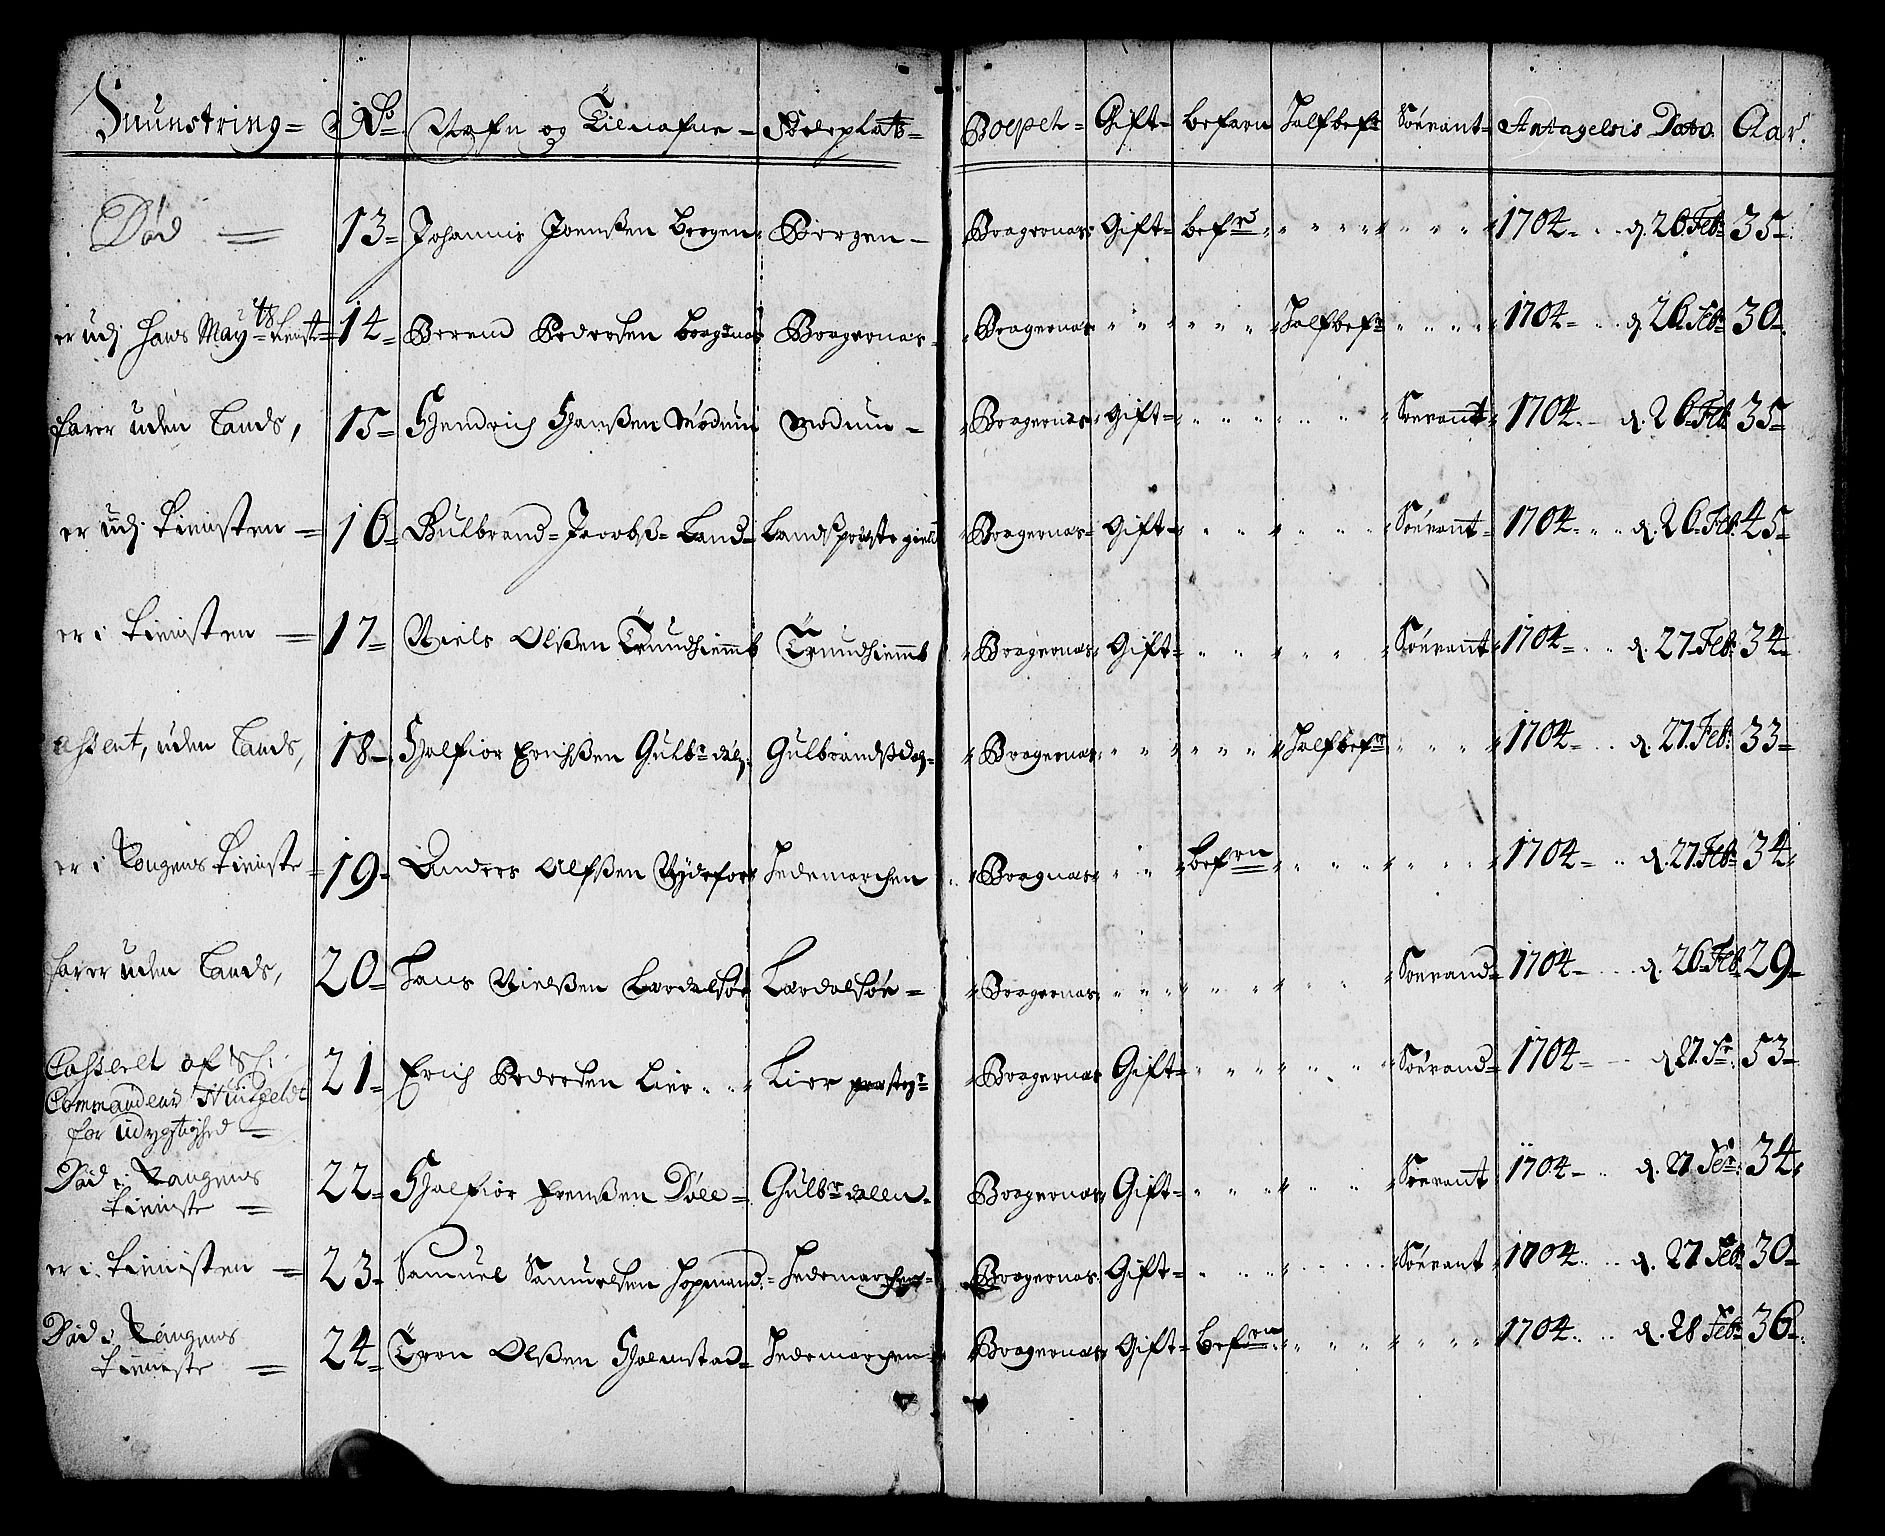 Muunstring = No Nafn og Tilnafne - Födeplats = Boepel = Gift = befarn Halfbefr Söevant = Antagelsis Dato. Aar.
Död = 13 = Johannis Joenßen Bergen Bergen - Bragernæs Gift = befrn 1704 d. 26 Feb 35
er udj Hans May.ts tienste 14 = Berend Pedersen Bragenæs Bragernæs Bragernæs Halfbefr 1704 d. 26 Feb 30
farer uden Lands, 15 = Hendrich Hanßen Modum Modum - Bragernæs Gift = Söevant 1704 d. 26 Feb 35
er udj tienisten = 16 = Gulbrand = Jacobß = Land Lands præstegield Bragernæs Gift = Söevant 1704 d. 26 Feb 45
er i tienisten = 17 = Niels Olßen Trundhiemb Trundhiemb Bragernæs Gift = Söevant 1704 d. 27 Feb 34
absent, uden Lands, 18 Halfvor Erichßen Gulbr dalen Gulbrandßdal Bragernæs Halfbefr 1704 d. 27 Feb 33
er i Kongens tieniste 19 Anders Olfßen Hedemarchen Bragnæs befrn 1704 d. 27 Feb 34
farer uden Lands, 20 Hans Nielßen Lærdalsör Lærdalsör = Bragernæs Söevand 1704 d. 26 Feb 29
Casseret af H:
Commandeur Hvitfeldt
for udygtighed = 21 Erich Pedersen Lier Lier præsteg Bragernæs Gift = Söevand 1704 d. 27 Fr 53
Död i Kongens
tieniste = 22 Halfvor Frenßen Döll = Gulbr dalen Bragernæs Gift = Söevant 1704 d. 27 Fer 34
er i tienisten = 23 Samuel Samuelsen Hopmand Hedemarchen Bragernæs Gift = Söevant 1704 d. 27 Feb 30
Död i Kongens
tieniste = 24 Tron Olßen Halmstad Hedemarchen Bragernæs Gift = befrn 1704 d. 28 Feb 36